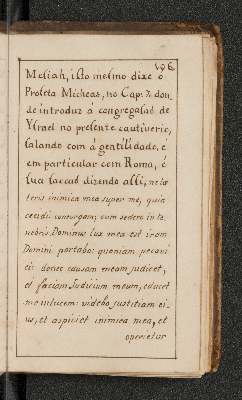 106
Mesiah, isto mesmo dixe o
Profeta Micheas, no Cap. 7. don-
de introduz á congregasaõ de
Ysrael no presente cautiverio,
falando com á gentilidade, é
em particular com Roma, é
sua sazaõ dizendo assi, ne læ
teris inimica mea super me, quia
cecidi consurgam; cum sedero in te-
nebris Dominus lux mea est iram
Domini portabo: quoniam pecavi
ei: donec causam meam judicet,
et faciam Judicium meum, educet
me in lucem: videbo justitiam ei-
us, et aspiciet inimica mea, et
operietur